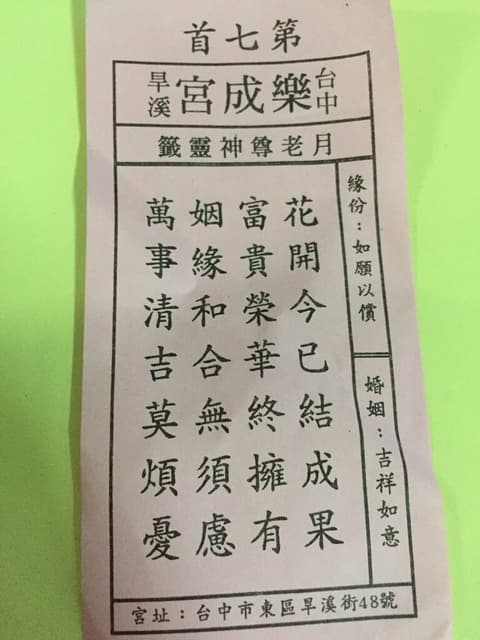 第七首
台中
樂成宮
旱溪
月老尊神靈籤
緣份：如願以償
婚姻：吉祥如意
花開今已結成果
富貴榮華終擁有
姻緣和合無須慮
萬事清吉莫煩憂
宮址：台中市東區旱溪街48號